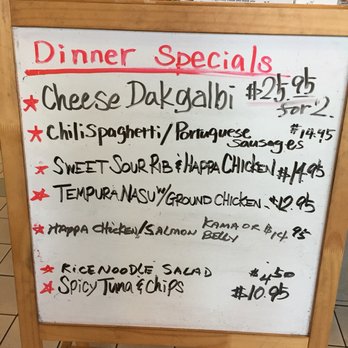 Dinner Specials
Cheese Dakgalbi $25.95
for 2.
Chili Spaghetti/Portuguese $14.95
Sausages
SWEET SOUR RIB & HAPPA CHICKEN $14.95
TEMPURA NASU W/GROUND CHICKEN $12.95
HAPPA CHICKEN/SALMON KAMA OR $14.95
BELLY
RICE NOODLE SALAD $4.50
SPICY TUNA & CHIPS $10.95